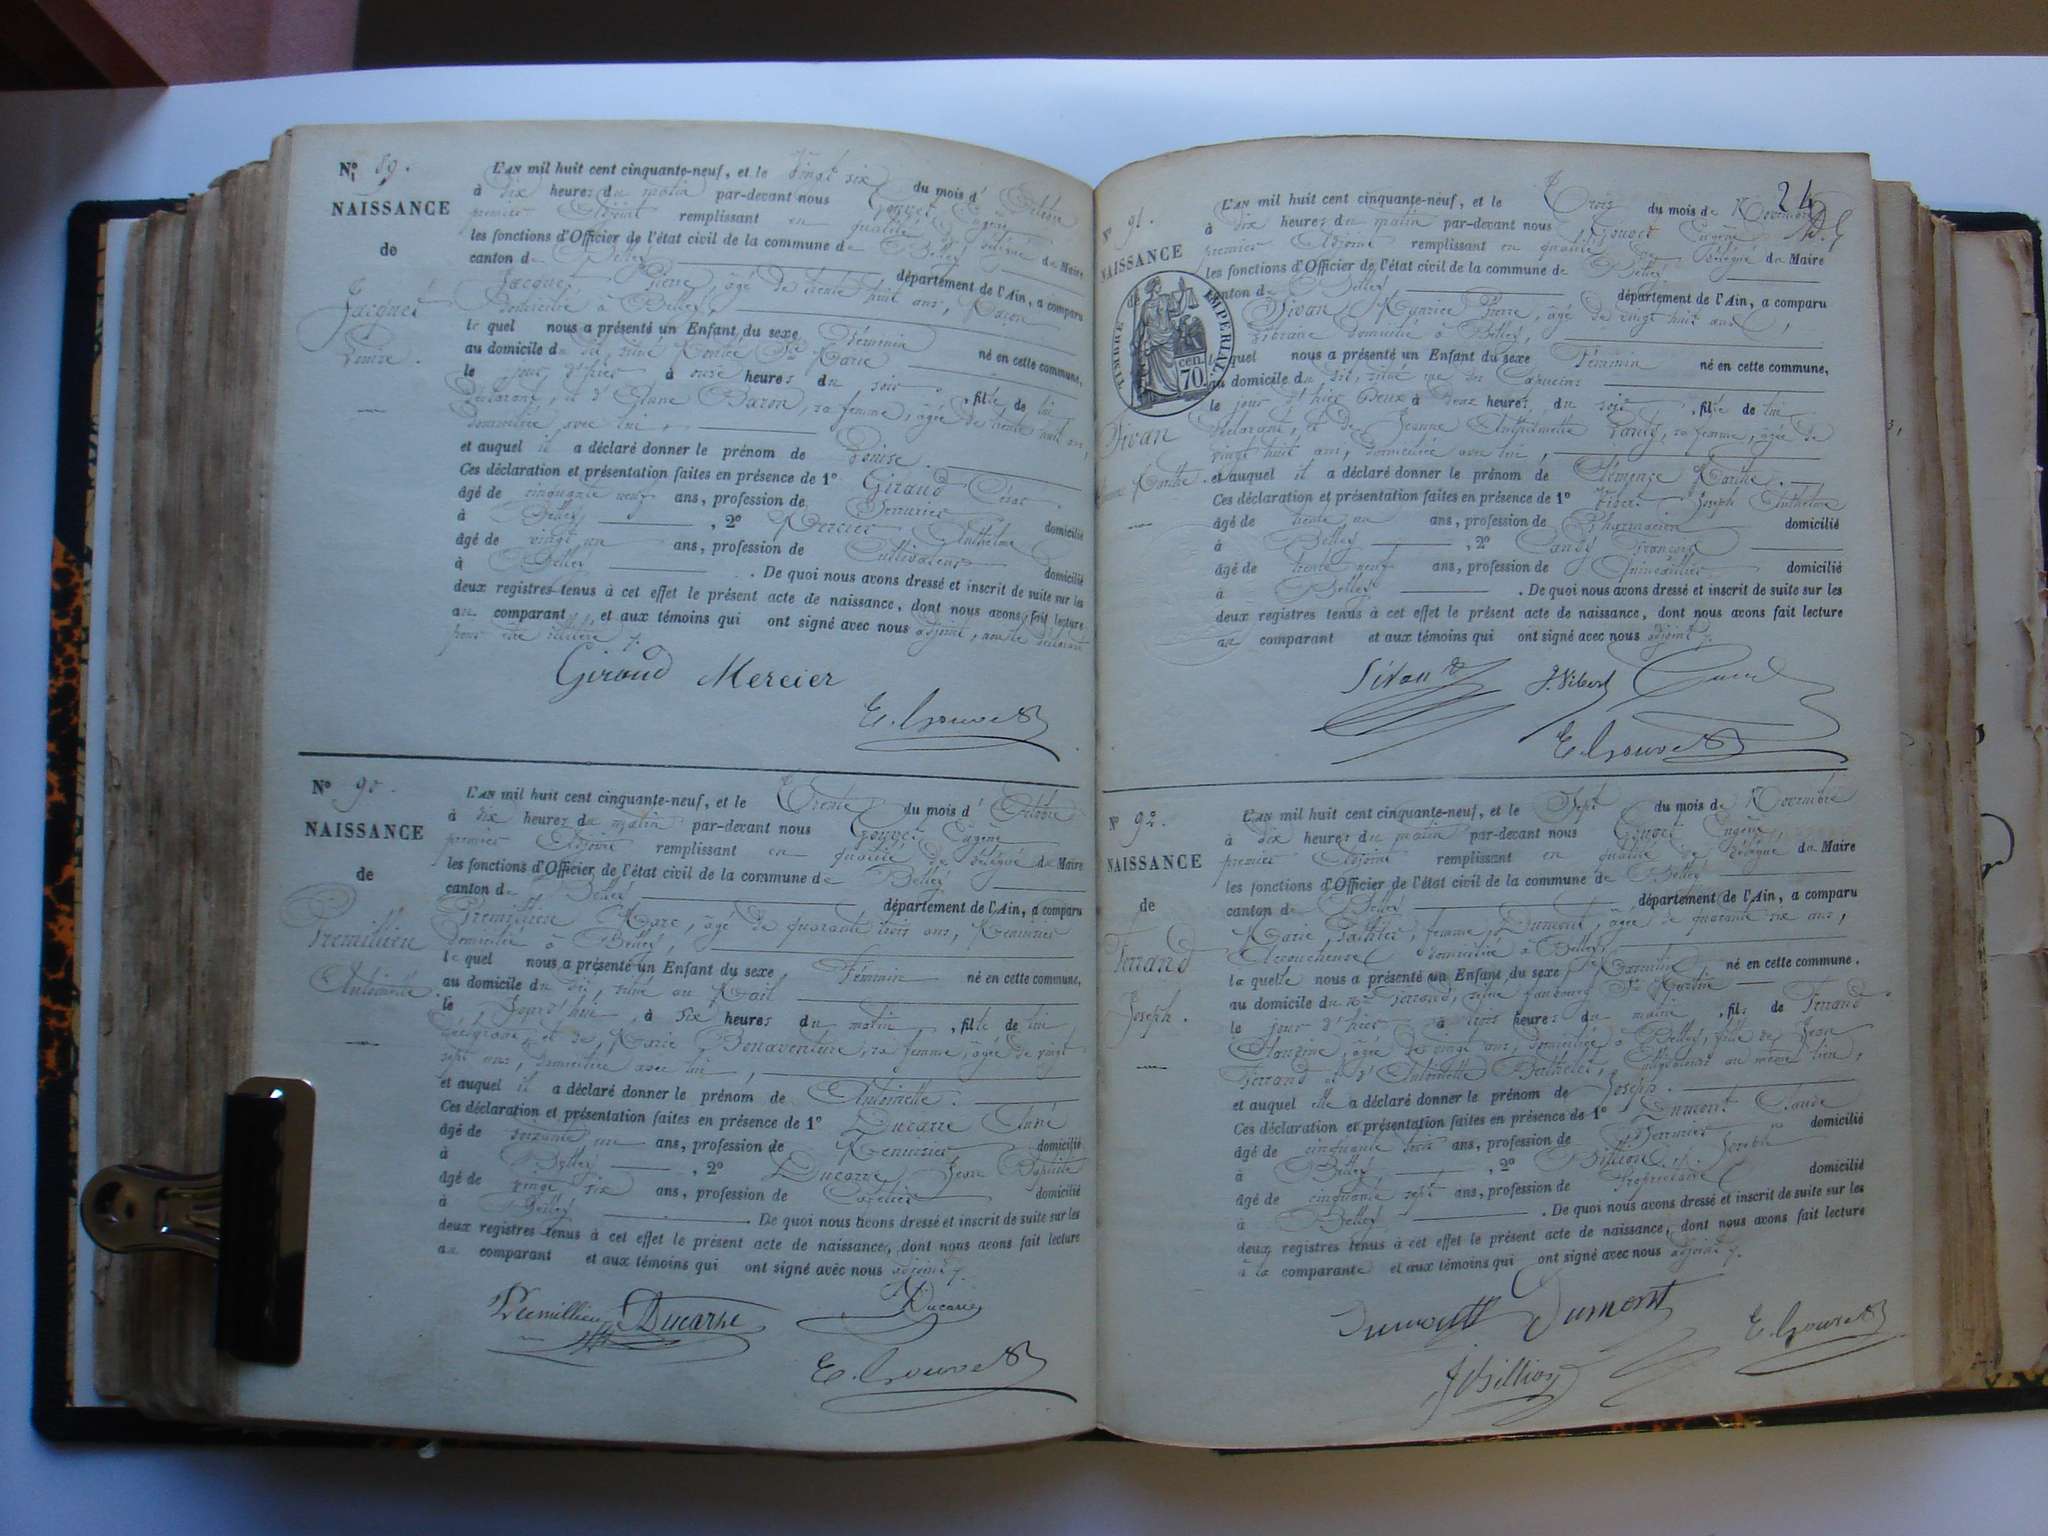 N° 89.
NAISSANCE
de
Jacquet
Denise.
L'AN mil huit cent cinquante-neuf, et le Vingt six du mois d'Octobre
à dix heures du matin par-devant nous Gouvet Eugène
premier Adjoint remplissant en qualité de Délégué du Maire
les fonctions d'Officier de l'état civil de la commune de Belley
canton de Belley département de l'Ain, a comparu
Jacquet, Pierre, âgé de trente huit ans, Maçon,
domicilié à Belley,
lequel nous a présenté un Enfant du sexe Féminin né en cette commune,
au domicile du dit, situé
le jour d'hier à onze heures du soir, fille de lui
déclarant, et d'Anne Baron, sa femme, âgée de trente huit ans,
domiciliée avec lui,
et auquel il a déclaré donner le prénom de Denise.
Ces déclaration et présentation faites en présence de 1° Giraud César
âgé de cinquante neuf ans, profession de Serrurier domicilié
à Belley, 2° Mercier Anthelme
âgé de vingt un ans, profession de Cultivateur domicilié
à Belley. De quoi nous avons dressé et inscrit de suite sur les
deux registres tenus à cet effet le présent acte de naissance, dont nous avons fait lecture
au comparant, et aux témoins qui ont signé avec nous adjoint, non le déclarant
pour être illitéré
Giraud Mercier
E. Gouvet
N° 90.
NAISSANCE
de
Premilieu
Antoinette.
L'AN mil huit cent cinquante-neuf, et le Trente du mois d'Octobre
à dix heures du matin par-devant nous Gouvet Eugène
premier Adjoint remplissant en qualité de Délégué du Maire
les fonctions d'Officier de l'état civil de la commune de Belley
canton de Belley département de l'Ain, a comparu
Premilieu Marc, âgé de quarante trois ans, Menuisier
domicilié à Belley,
lequel nous a présenté un Enfant du sexe Féminin né en cette commune,
au domicile du dit, situé au Mail
le jourd'hui à six heures du matin, fille de lui
déclarant, et de Marie Bonaventure, sa femme, âgée de vingt
sept ans, domiciliée avec lui,
et auquel il a déclaré donner le prénom de Antoinette.
Ces déclaration et présentation faites en présence de 1° Ducarre Aimé
âgé de soixante un ans, profession de Menuisier domicilié
à Belley, 2° Ducarre Jean Baptiste
âgé de vingt six ans, profession de domicilié
à Belley. De quoi nous avons dressé et inscrit de suite sur les
deux registres tenus à cet effet le présent acte de naissance, dont nous avons fait lecture
au comparant et aux témoins qui ont signé avec nous adjoint
Premillieu Ducarre Ducarre
E. Gouvet
24
N° 91.
NAISSANCE
de
TIMBRE IMPÉRIAL
70 cen.
Sivan
Clémence Marthe.
L'AN mil huit cent cinquante-neuf, et le Trois du mois de Novembre
à dix heures du matin par-devant nous Gouvet Eugène
premier Adjoint remplissant en qualité de Délégué du Maire
les fonctions d'Officier de l'état civil de la commune de Belley
canton de Belley département de l'Ain, a comparu
Sivan Maurice Pierre, âgé de vingt huit ans,
Libraire domicilié à Belley,
lequel nous a présenté un Enfant du sexe Féminin né en cette commune,
au domicile du dit, situé rue des Capucins
le jour d'hier deux à deux heures du soir, fille de lui
déclarant, et de Jeanne Anthelmette sa femme, âgée de
vingt huit ans, domiciliée avec lui,
et auquel il a déclaré donner le prénom de Clémence Marthe.
Ces déclaration et présentation faites en présence de 1° Vibert Joseph Anthelme
âgé de trente un ans, profession de Pharmacien domicilié
à Belley, 2° François
âgé de trente neuf ans, profession de Quincaillier domicilié
à Belley. De quoi nous avons dressé et inscrit de suite sur les
deux registres tenus à cet effet le présent acte de naissance, dont nous avons fait lecture
au comparant et aux témoins qui ont signé avec nous adjoint
Sivan J. Vibert
E. Gouvet
N° 92.
NAISSANCE
de
Ferrand
Joseph.
L'AN mil huit cent cinquante-neuf, et le Sept du mois de Novembre
à dix heures du matin par-devant nous Gouvet Eugène
premier Adjoint remplissant en qualité de Délégué du Maire
les fonctions d'Officier de l'état civil de la commune de Belley
canton de Belley département de l'Ain, a comparu
Marie femme Dumont, âgée de quarante six ans,
Accoucheuse domiciliée à Belley,
laquelle nous a présenté un Enfant du sexe Masculin né en cette commune.
au domicile du Ferrand, situé faubourg St Martin
le jour d'hier à trois heures du matin, fils de Ferrand
Claudine, âgée de vingt ans, domiciliée à Belley, fille de Jean
Ferrand et d'Antoinette Berthelet, au même lieu,
et auquel elle a déclaré donner le prénom de Joseph.
Ces déclaration et présentation faites en présence de 1° Dumont Claude
âgé de cinquante trois ans, profession de Serrurier domicilié
à Belley, 2° Billion Joseph
âgé de cinquante sept ans, profession de Propriétaire domicilié
à Belley. De quoi nous avons dressé et inscrit de suite sur les
deux registres tenus à cet effet le présent acte de naissance, dont nous avons fait lecture
à la comparante et aux témoins qui ont signé avec nous adjoint
Dumont Dumont
E. Gouvet
J Billion